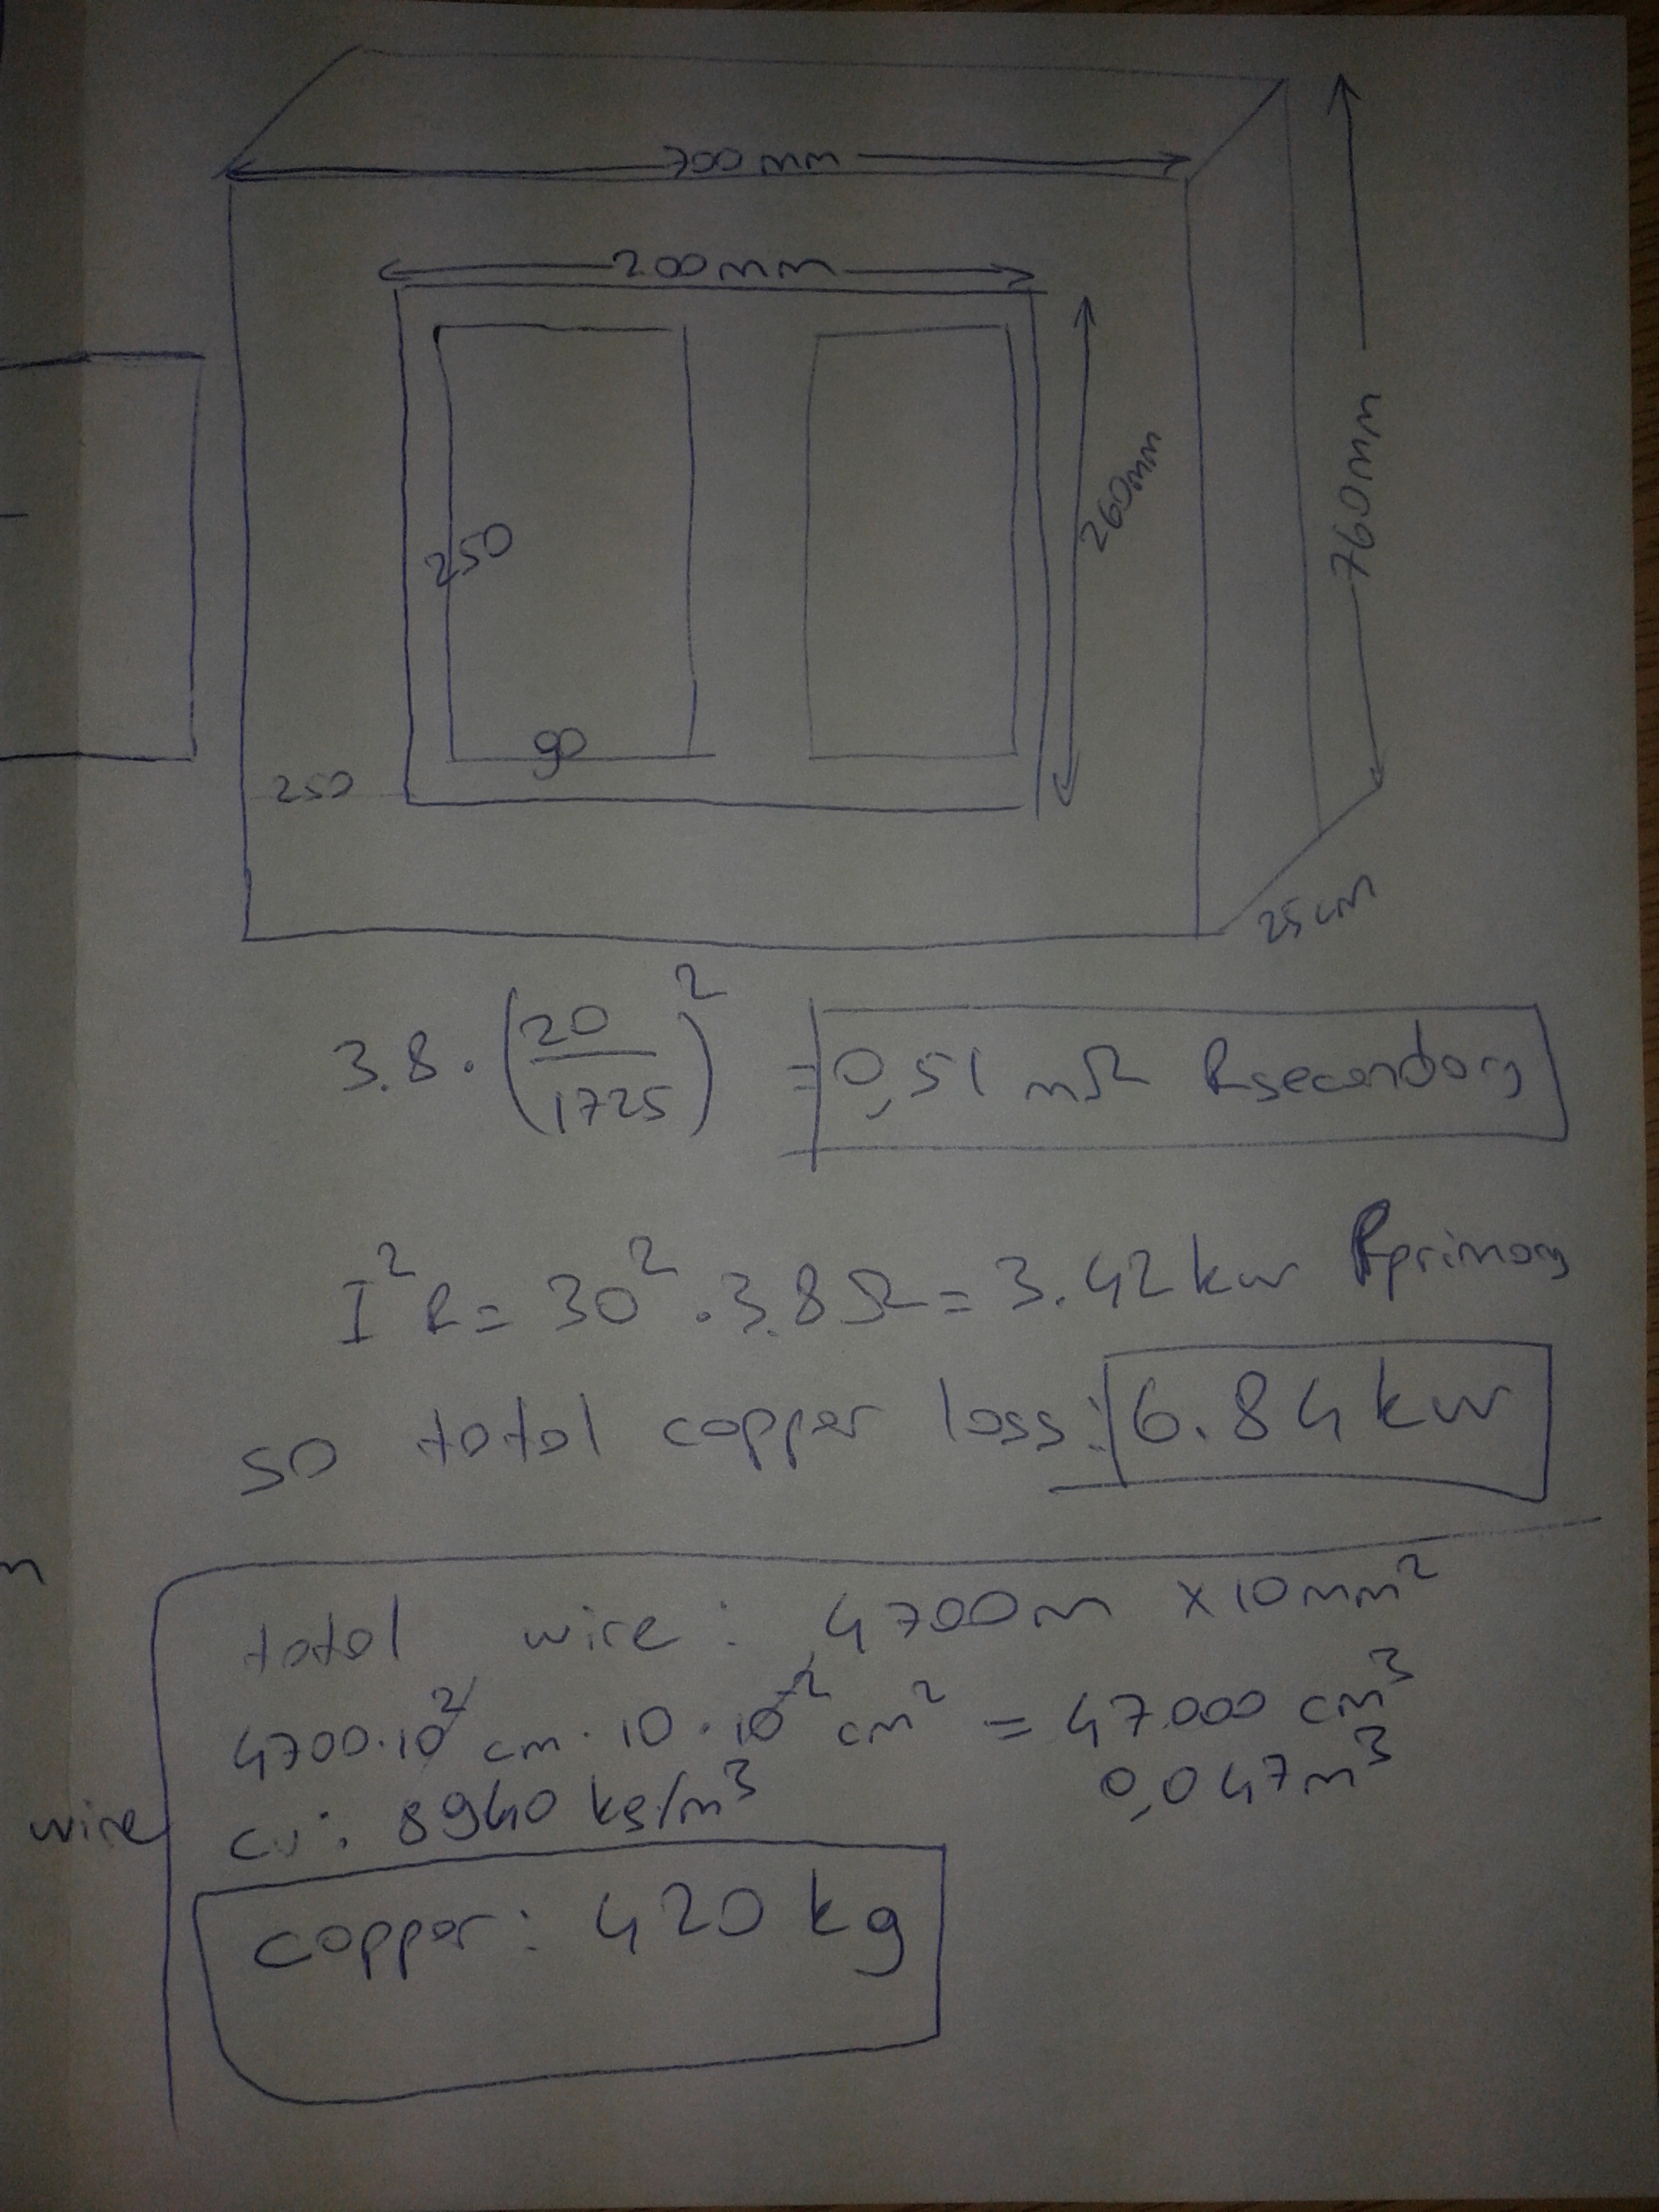 700mm
200mm
250
260mm
760mm
90
250
25cm
3.8 · (20/1725)² = 0,51 mΩ Rsecondary
I²R = 30² · 3.8Ω = 3.42kw Rprimary
so total copper loss: 6.84kw
m
total wire: 4700m x10mm²
4700·10² cm · 10 · 10⁻² cm² = 47.000 cm³
0,047m³
wire
cu: 8940 kg/m³
copper: 420 kg